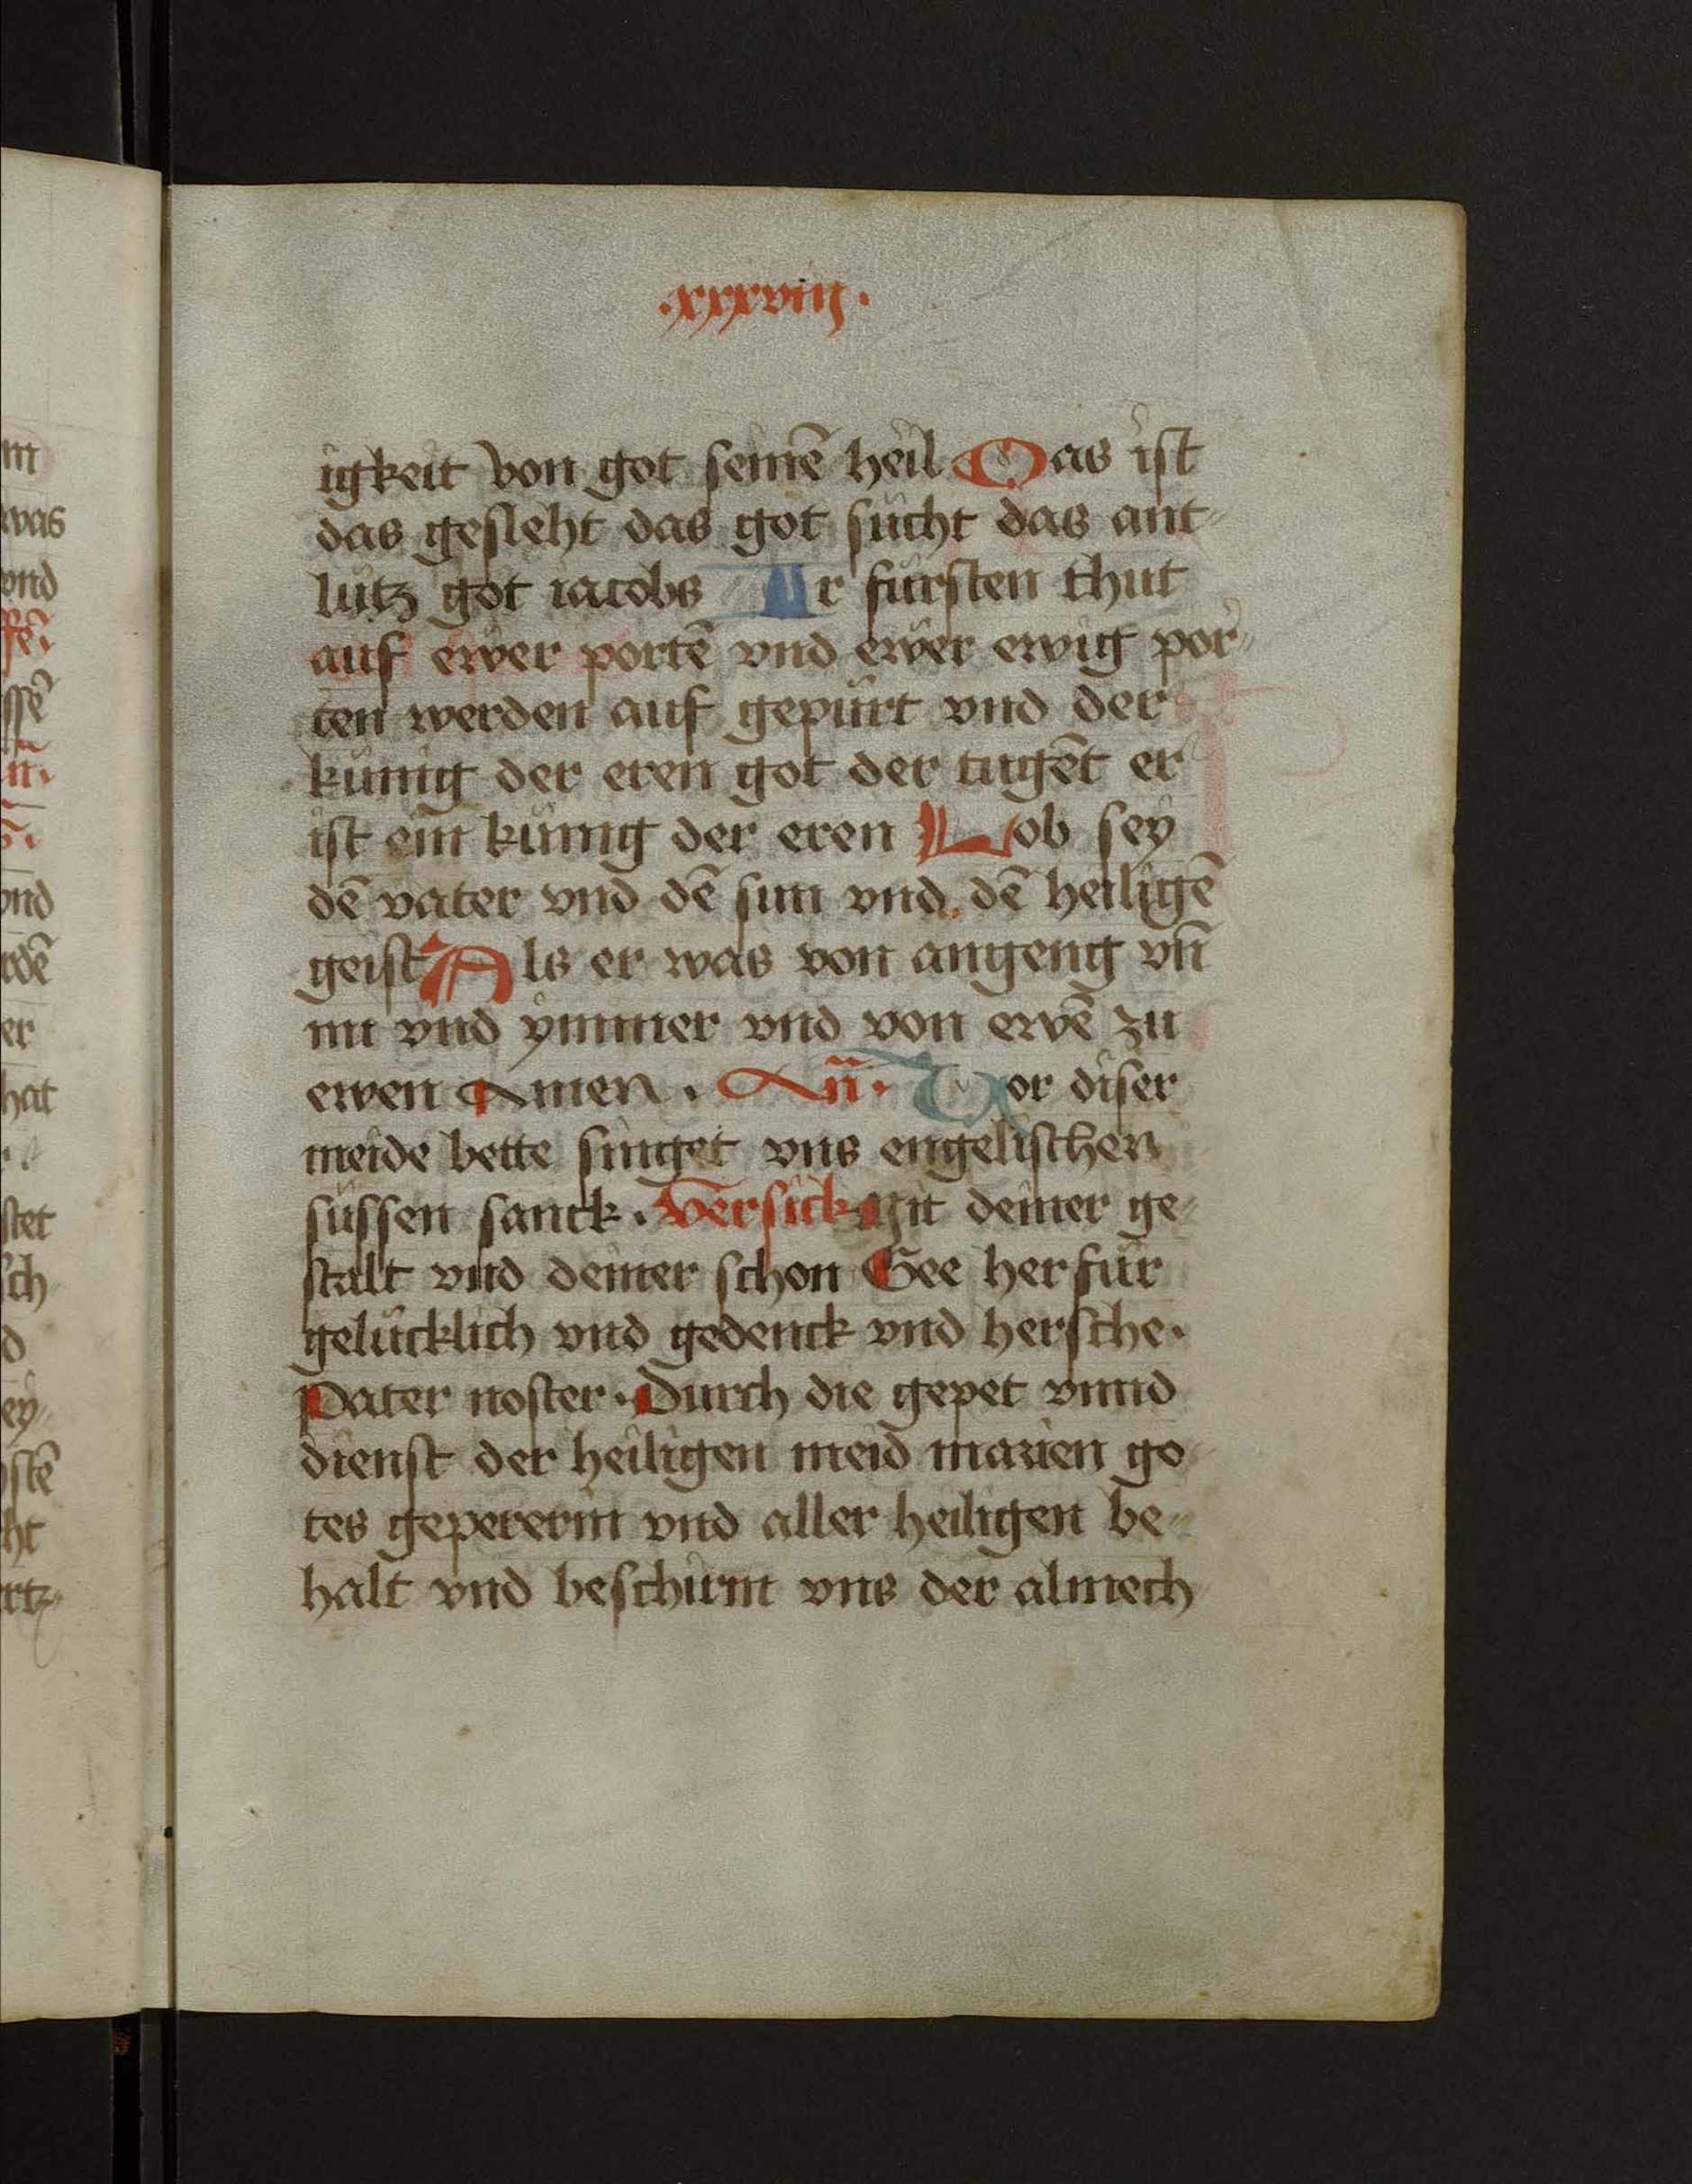 .xxxviij.
igkeit von got seinē heil Das ist
das gesleht das got sücht das ant-
lütz got iacobs Ir fürsten thut
auf ewer portē vnd ewer ewig por-
ten werden auf gepürt vnd der
künig der eren got der tugēt er
ist ein künig der eren Lob sey
dē vater vnd dē sun vnd dē heiligē
geist Als er was von angeng vn̄
nu vnd ymmer vnd von ewē zu
ewen Amen. An̄. Vor diser
meide bette singet vns engelischen
süssen sanck. Versick Mit deiner ge-
stalt vnd deiner schon Gee herfür
gelücklich vnd gedenck vnd hersche.
Pater noster. Durch die gepet vnnd
dienst der heiligen meid marien go-
tes gepererin vnd aller heiligen be-
halt vnd beschirm vns der almech-